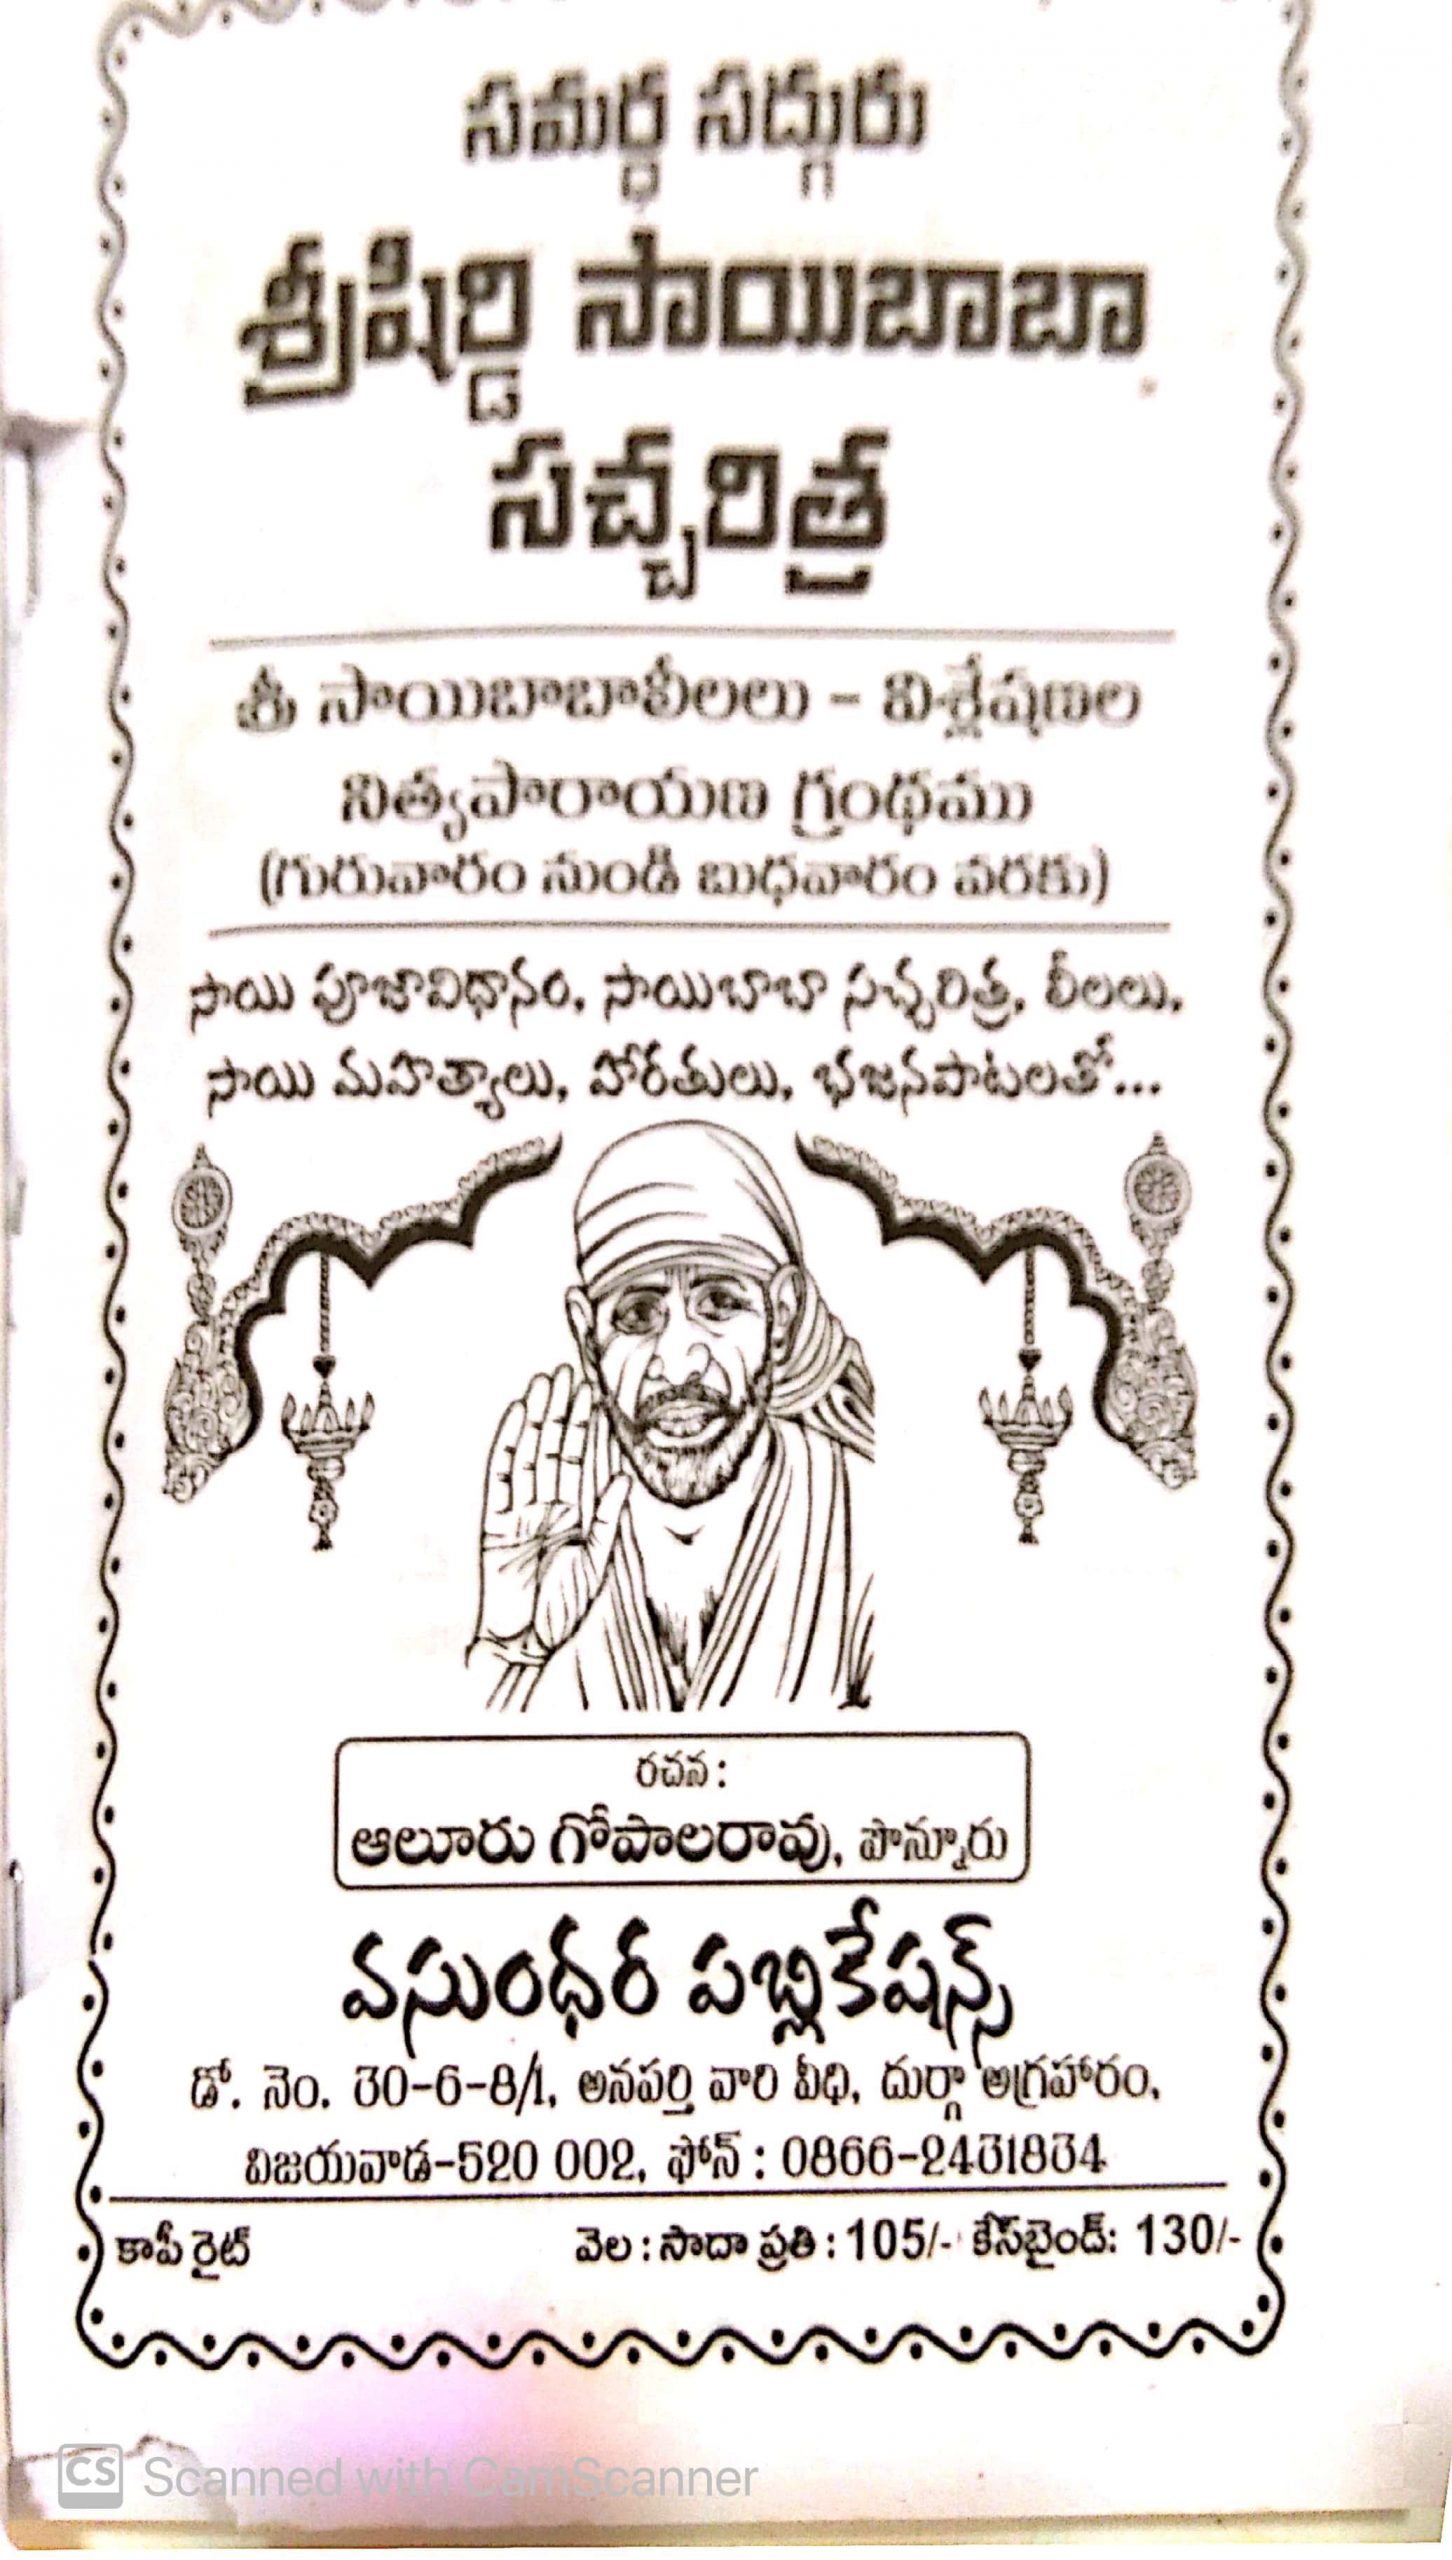 సమర్ధ సద్గురు
శ్రీషిర్డి సాయిబాబా
సచ్చరిత్ర
శ్రీ సాయిబాబాలీలలు - విశ్లేషణల
నిత్యపారాయణ గ్రంథము
(గురువారం నుండి బుధవారం వరకు)
సాయి పూజావిధానం, సాయిబాబా సచ్చరిత్ర, లీలలు,
సాయి మహత్యాలు, హారతులు, భజనపాటలతో...
రచన :
ఆలూరు గోపాలరావు, పొన్నూరు
వసుంధర పబ్లికేషన్స్
డో. నెం. 30-6-8/1, అనపర్తి వారి వీధి, దుర్గా అగ్రహారం,
విజయవాడ-520 002, ఫోన్ : 0866-2431834
కాపీ రైట్ వెల : సాదా ప్రతి : 105/- కేస్‌బైండ్: 130/-
CS Scanned with CamScanner